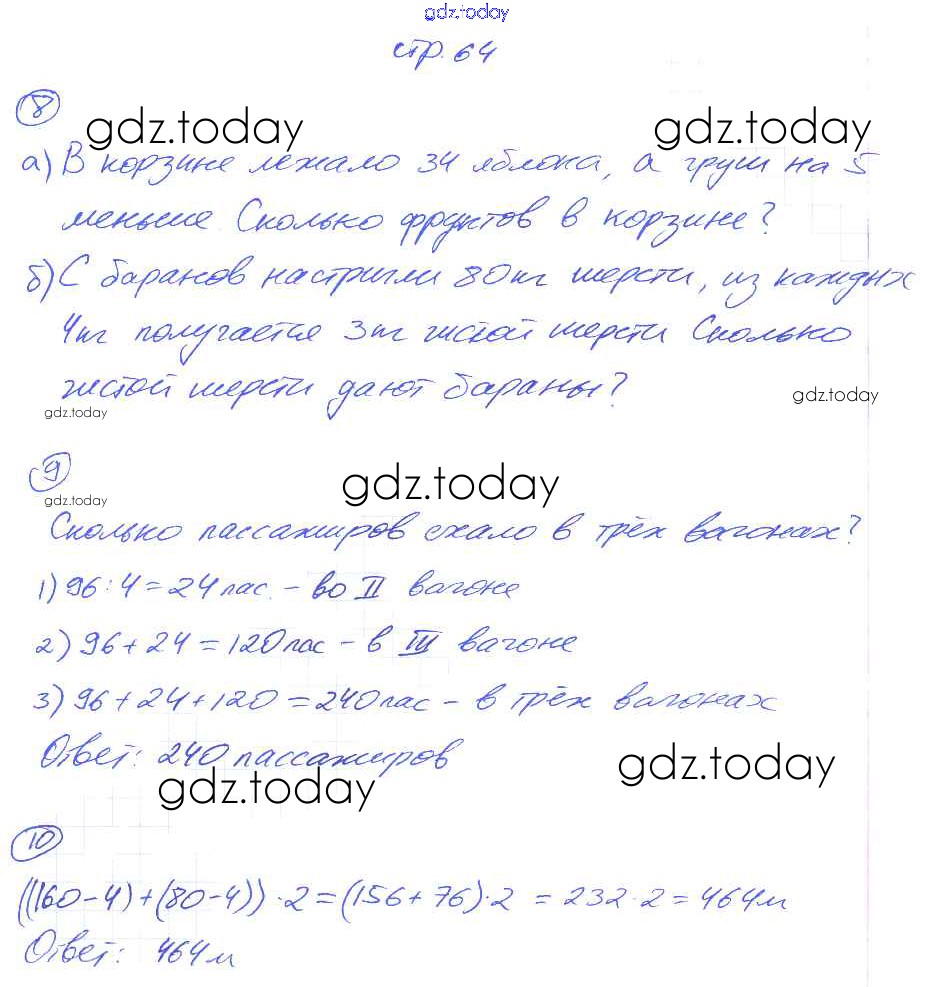 gdz.today
стр. 64
8
gdz.today gdz.today
а) В корзине лежало 34 яблока, а груш на 5
меньше. Сколько фруктов в корзине?
б) С баранов настригли 80кг шерсти, из каждых
4кг получается 3кг чистой шерсти Сколько
чистой шерсти дают бараны?
gdz.today
gdz.today
9
gdz.today
gdz.today
Сколько пассажиров ехало в трёх вагонах?
1) 96 : 4 = 24 пас. – во II вагоне
2) 96 + 24 = 120 пас – в III вагоне
3) 96 + 24 + 120 = 240 пас – в трёх вагонах
Ответ: 240 пассажиров
gdz.today
gdz.today
10
((160 – 4) + (80 – 4)) · 2 = (156 + 76) · 2 = 232 · 2 = 464 м
Ответ: 464 м